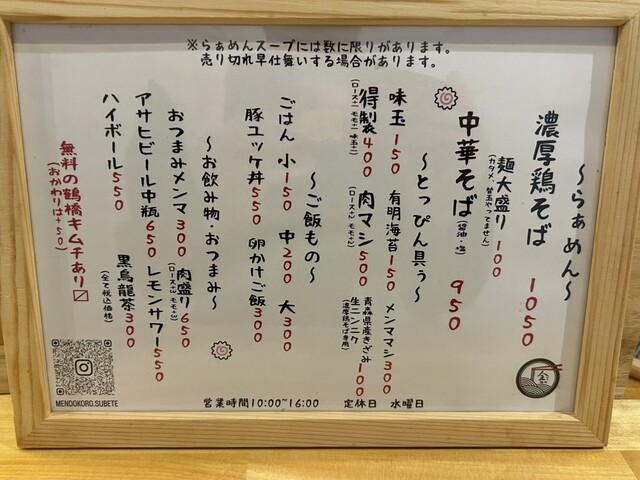 ※らぁめんスープには数に限りがあります。
売り切れ早仕舞いする場合があります。
～らぁめん～
濃厚鶏そば 1050
麺大盛り 100
(カタメ、替玉やってません)
中華そば(醤油・塩) 950
～とっぴん具ぅ～
味玉 150
有明海苔 150
メンママシ 300
得製 400
(ロース+1 モモ+1 味玉+1)
肉マシ 500
(ロース+2 モモ+2)
青森県産きざみ
生ニンニク 100
(濃厚鶏そば専用)
～ご飯もの～
ごはん 小150 中200 大300
豚ユッケ丼 550
卵かけご飯 300
～お飲み物・おつまみ～
おつまみメンマ 300
肉盛り 650
(ロース+3 モモ+3)
アサヒビール中瓶 650
レモンサワー 550
ハイボール 550
黒烏龍茶 300
(全て税込価格)
無料の鶴橋キムチあり〼
(おかわりは+50)
MENDOKORO.SUBETE
営業時間10:00~16:00 定休日 水曜日